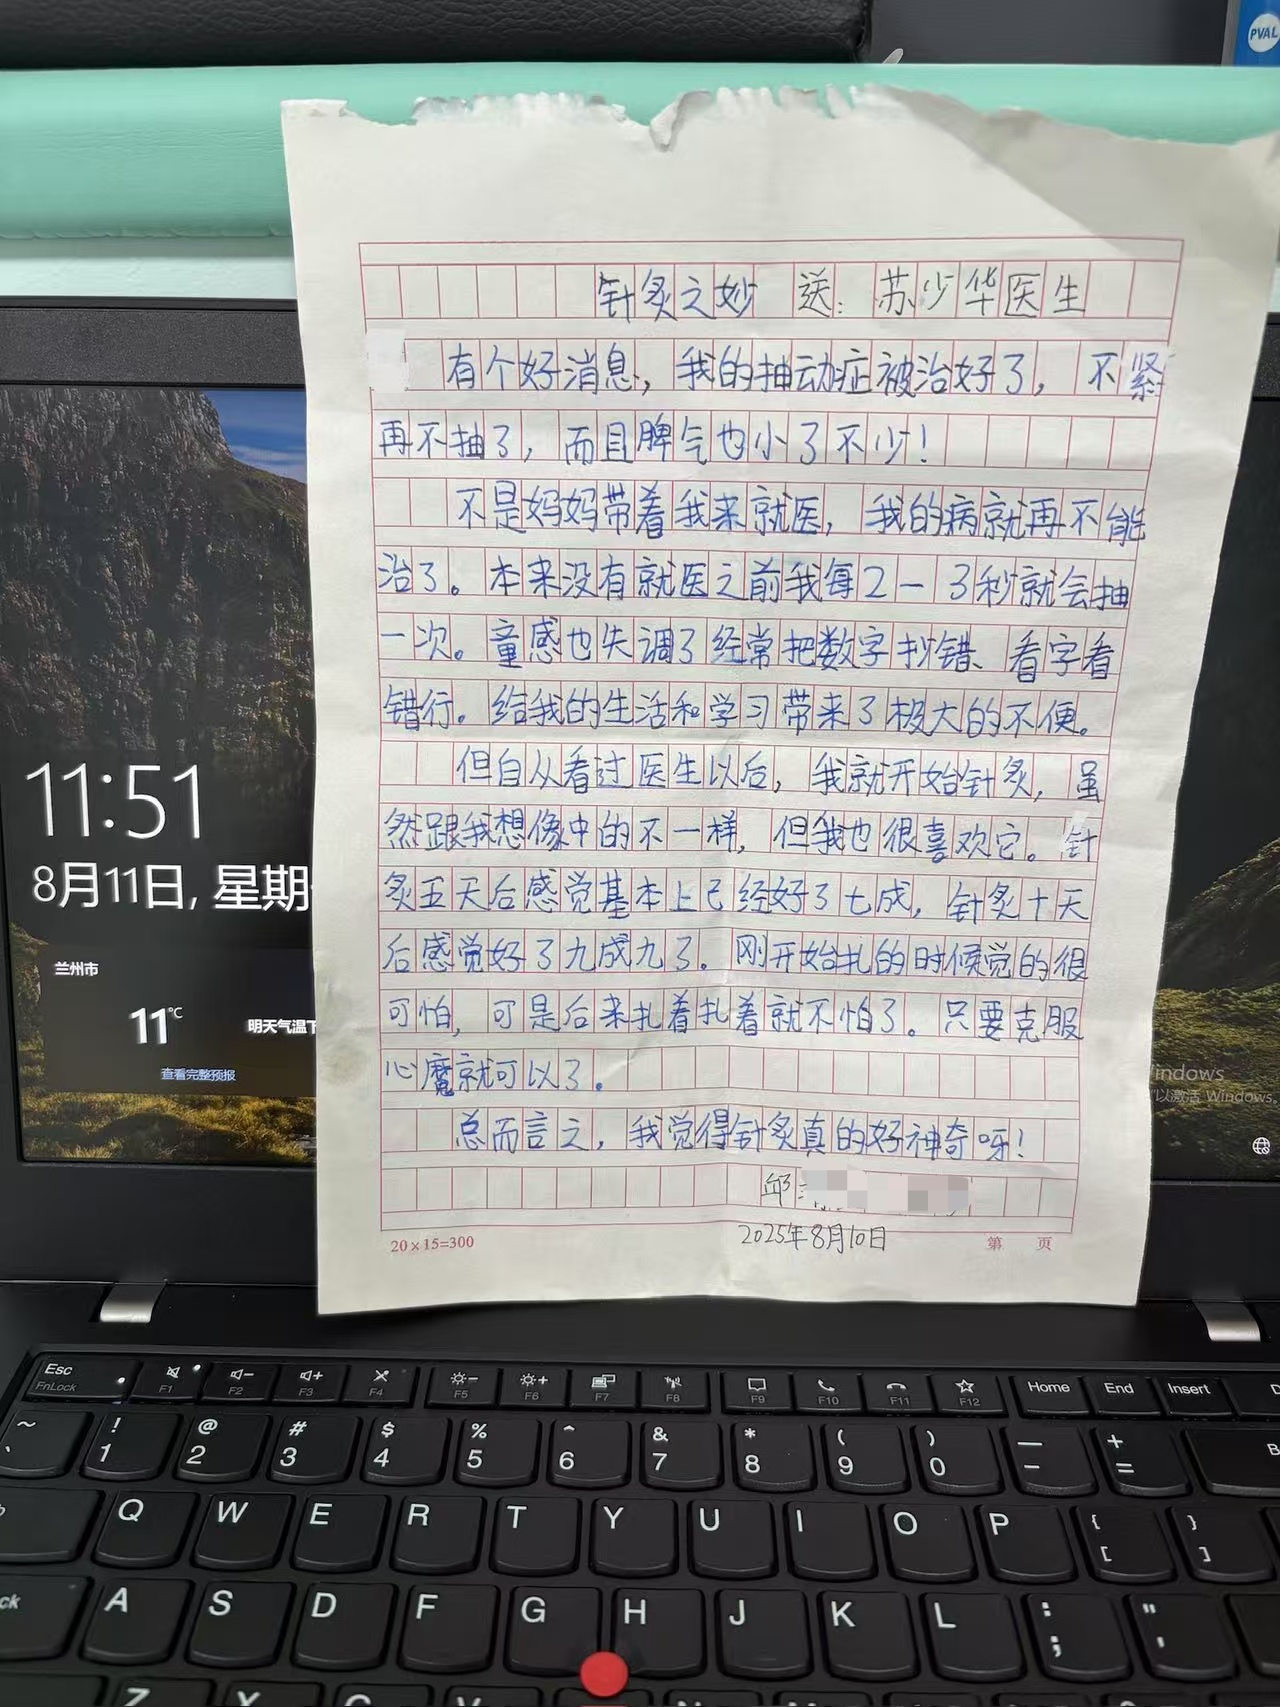 PVAL
针灸之妙 送：苏少华医生
有个好消息，我的抽动症被治好了，不紧
再不抽了，而且脾气也小了不少！
不是妈妈带着我来就医，我的病就再不能
治了。本来没有就医之前我每2-3秒就会抽
一次。童感也失调了经常把数字抄错、看字看
错行。给我的生活和学习带来了极大的不便。
但自从看过医生以后，我就开始针灸，虽
然跟我想像中的不一样，但我也很喜欢它。针
灸五天后感觉基本上已经好了七成，针灸十天
后感觉好了九成九了。刚开始扎的时候觉的很
可怕，可是后来扎着扎着就不怕了。只要克服
心魔就可以了。
总而言之，我觉得针灸真的好神奇呀！
邱
2025年8月10日
20×15=300 第 页
11:51
8月11日, 星期
兰州市
11°C 明天气温下
查看完整预报
indows
以激活 Windows。
Esc F1 F2 F3 F4 F5 F6 F7 F8 F9 F10 F11 F12 Home End Insert D
FnLock
~ ! @ # $ % ^ & * ( ) — +
` 1 2 3 4 5 6 7 8 9 0 - = B
Q W E R T Y U I O P { }
[ ]
ck A S D F G H J K L : "
; '
Z X C V N M